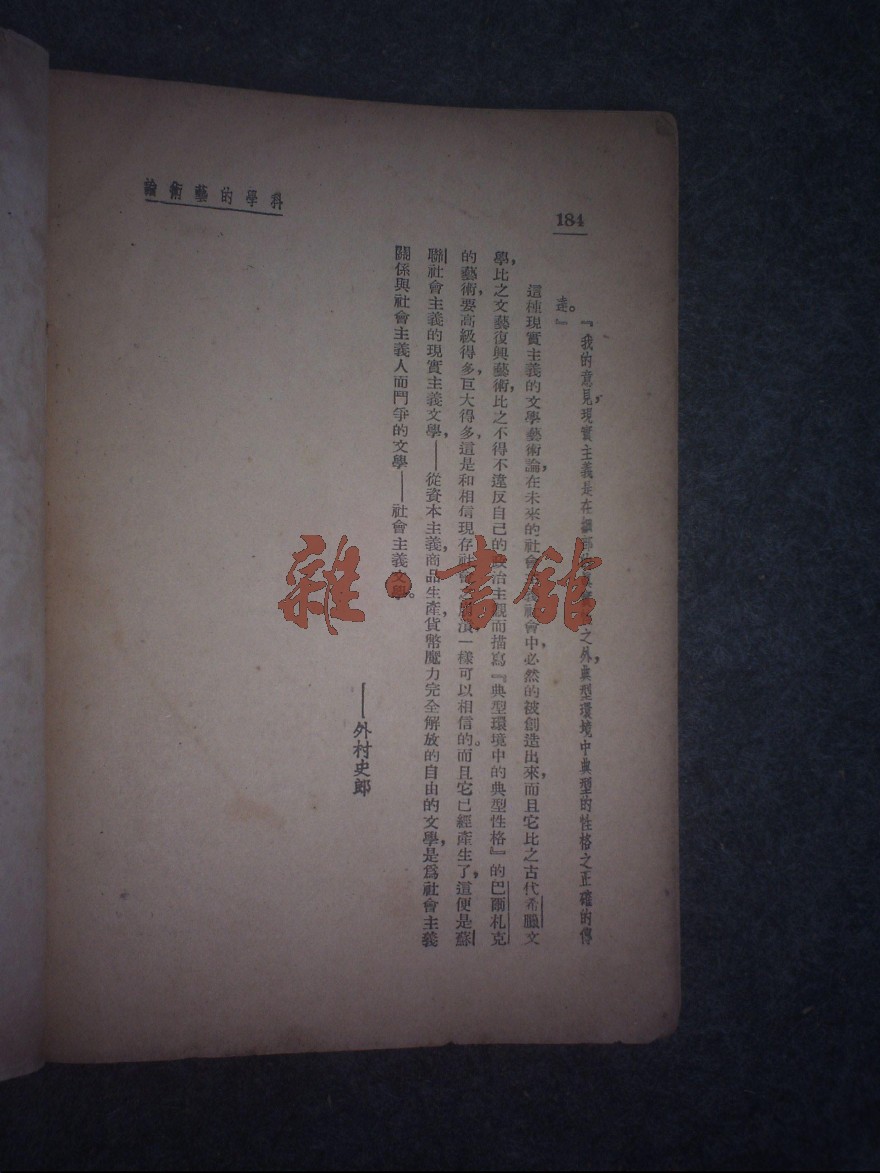 184
科學的藝術論
『我的意見,現實主義是在細部的之外,典型環境中典型的性格之正確的傳
達。』
這種現實主義的文學藝術論,在未來的社會社會中必然的被創造出來,而且它比之古代希臘文
學,比之文藝復興藝術,比之不得不違反自己的政治主觀而描寫『典型環境中的典型性格』的巴爾札克
的藝術,要高級得多,巨大得多,這是和相信現存社會一樣可以相信的。而且它已經產生了,這便是蘇
聯社會主義的現實主義文學,——從資本主義,商品生產,貨幣魔力完全解放的自由的文學,是爲社會主義
關係與社會主義人而鬥爭的文學——社會主義文學。
——外村史郎
雜·書館